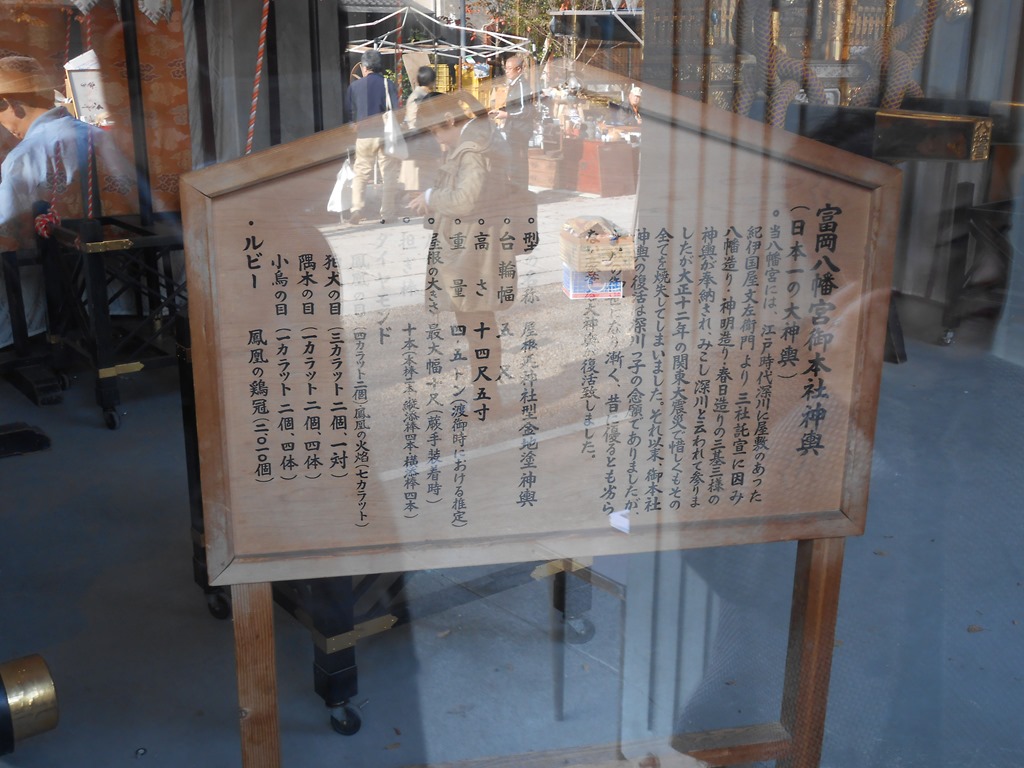 富岡八幡宮御本社神輿
(日本一の大神輿)
。当八幡宮には、江戸時代深川に屋敷のあった
紀伊国屋文左衛門より、三社託宣に因み
八幡造り・神明造り・春日造りの三基三様の
神輿が奉納され、みこし深川と云われて参りま
したが大正十二年の関東大震災で惜しくもその
全てを焼失してしまいました。それ以来、御本社
神輿の復活は深川っ子の念願でありましたが、
になり漸く、昔を偲るとも劣ら
大神輿が復活致しました。
。型 屋根 神社型金地塗神輿
。台輪幅 五尺
。高さ 十四尺五寸
。重量 四・五トン(渡御時における推定)
。屋根の大きさ 最大幅十尺(蕨手装着時)
。担ぎ棒 十本(本棒二本・縦添棒四本・横添棒四本)
・ダイヤモンド
鳳凰の目(四カラット二個)鳳凰の火焔(七カラット)
狛犬の目(三カラット二個一対)
隅木の目(一カラット二個、四体)
小鳥の目(一カラット二個、四体)
・ルビー 鳳凰の鶏冠(二〇一〇個)